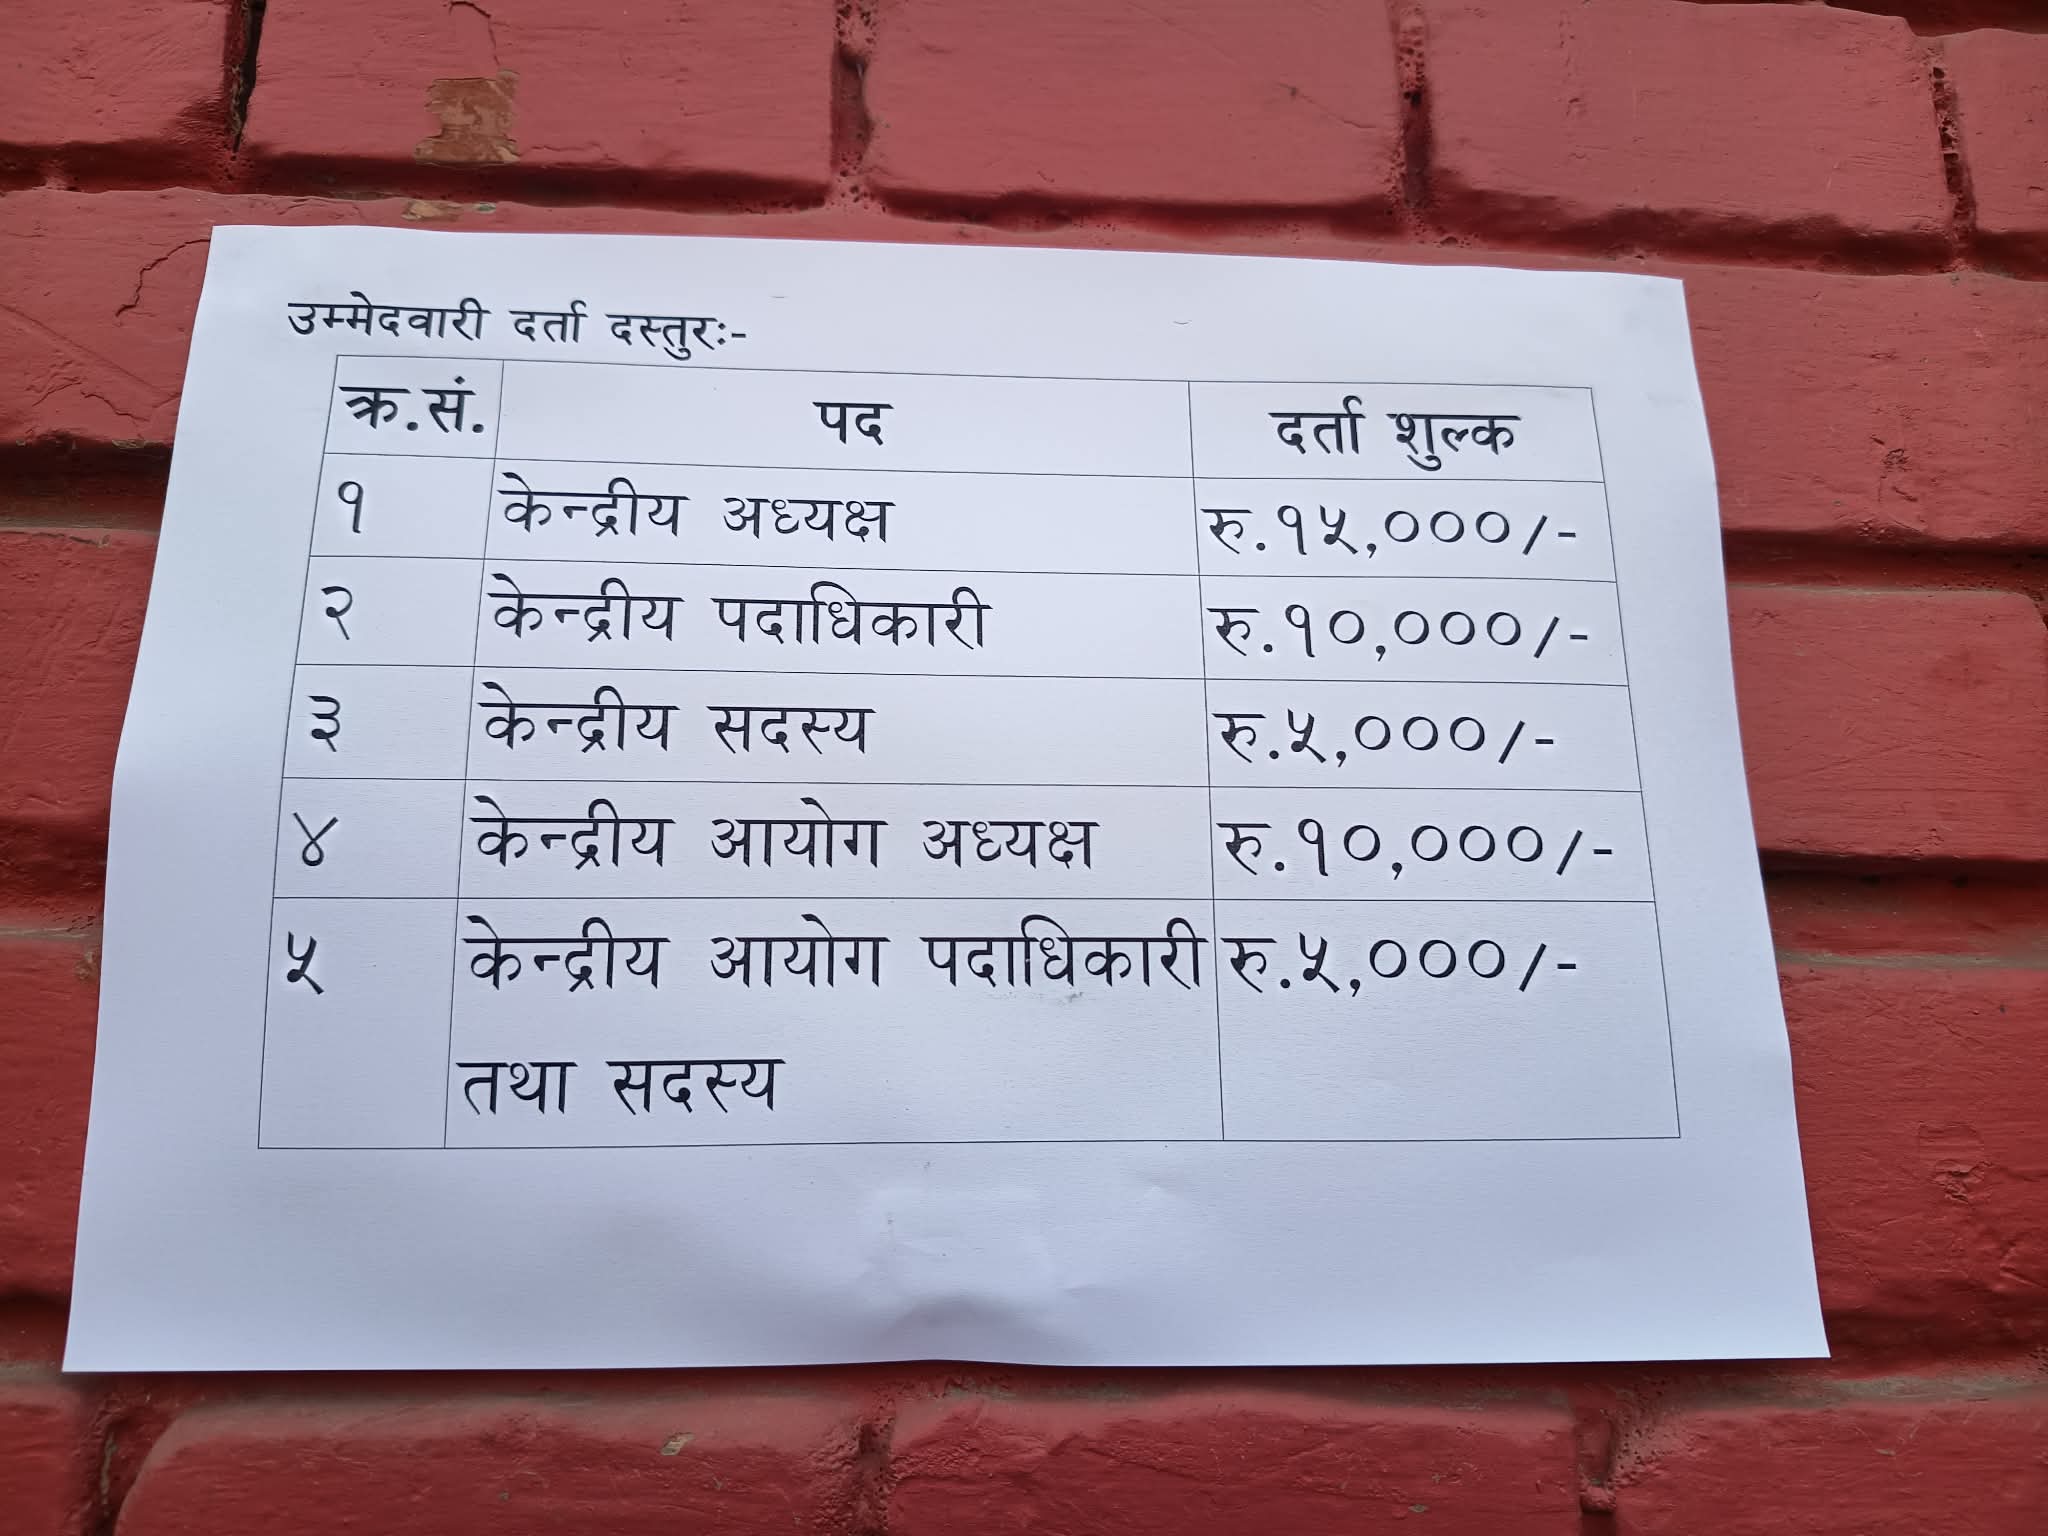 उम्मेदवारी दर्ता दस्तुरः-
क्र.सं. पद दर्ता शुल्क
१ केन्द्रीय अध्यक्ष रु.१५,०००/-
२ केन्द्रीय पदाधिकारी रु.१०,०००/-
३ केन्द्रीय सदस्य रु.५,०००/-
४ केन्द्रीय आयोग अध्यक्ष रु.१०,०००/-
५ केन्द्रीय आयोग पदाधिकारी रु.५,०००/-
तथा सदस्य